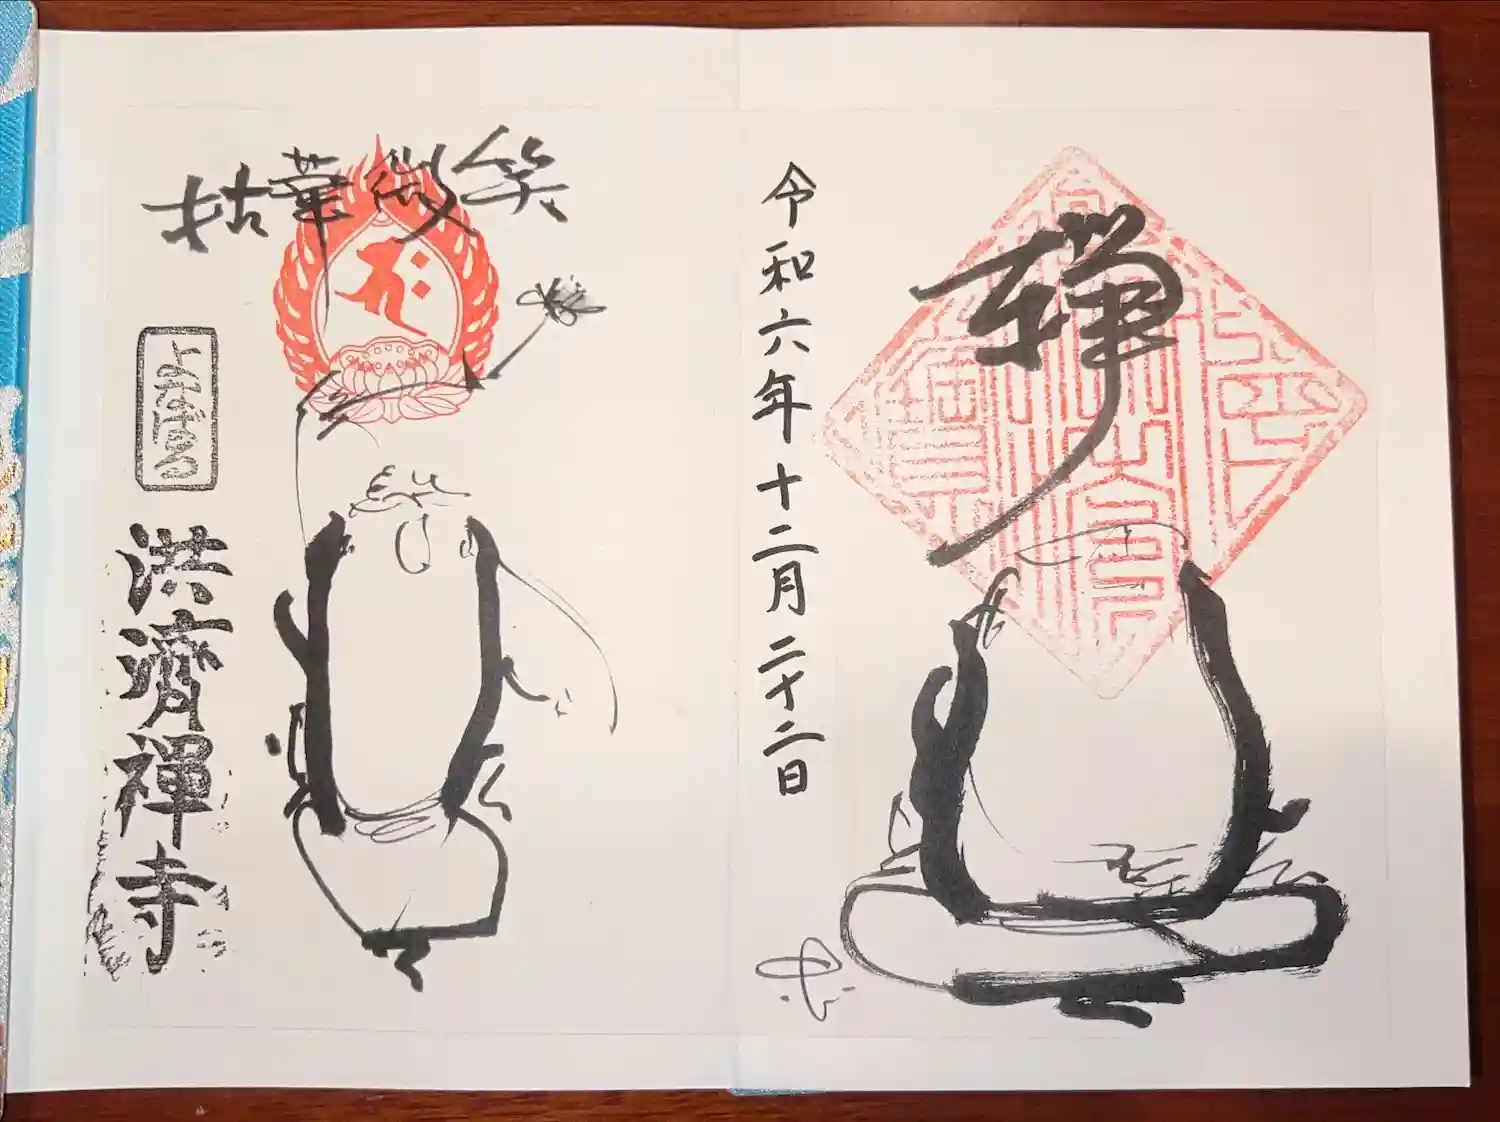 禅
令和六年十二月二十二日
拈華微笑
よなばる
洪濟禪寺